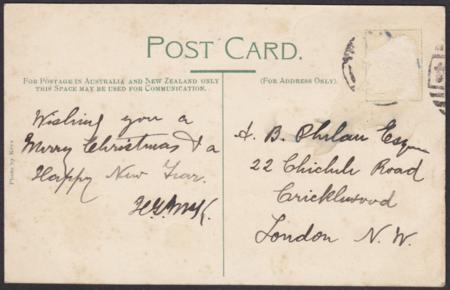 POST CARD.
FOR POSTAGE IN AUSTRALIA AND NEW ZEALAND ONLY
THIS SPACE MAY BE USED FOR COMMUNICATION.
(FOR ADDRESS ONLY).
Photo by Kerry
Wishing you a
Merry Christmas & a
Happy New Year.
H. B. Phelan Esq
22 Chichele Road
Cricklewood
London N. W.